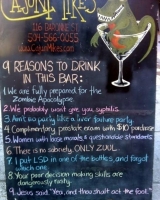 CAJUN MIKE'S
116 BARONNE ST
504-566-0055
www.CajunMikes.com
9 REASONS TO DRINK
IN THIS BAR:
1. We are fully prepared for the
Zombie Apocalypse
2. We probably won't give you syphilis
3. Ain't no party like a liver failure party
4. Complimentary prostate exam with $10 purchase
5. Women with loose morals & questionable standards
6. There is sobriety, ONLY ZUUL
7. I put LSD in one of the bottles, and forgot
which one
8. Your poor decision making skills are
dangerously tasty
9. Jesus said "Yea, and thou shalt act the fool."